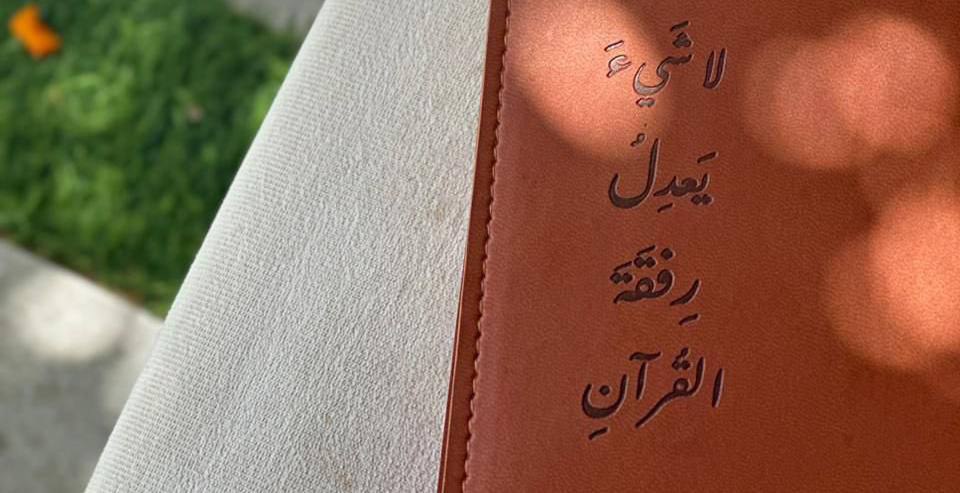 لا شَيءَ
يَعدِلُ
رِفقَةَ
القُرآنِ